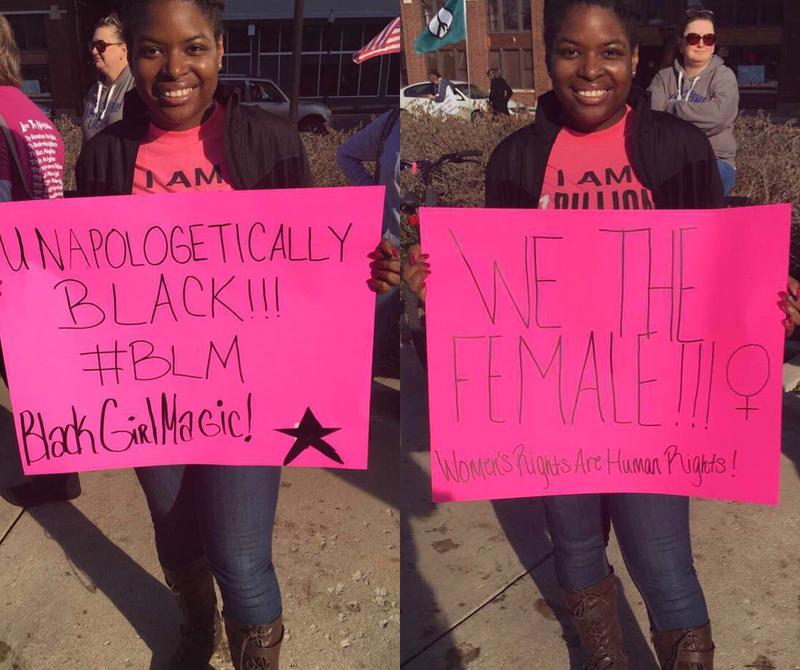 I AM
UNAPOLOGETICALLY
BLACK!!!
#BLM
Black Girl Magic!
I AM
1 BILLION
WE THE
FEMALE!!!
Women's Rights Are Human Rights!